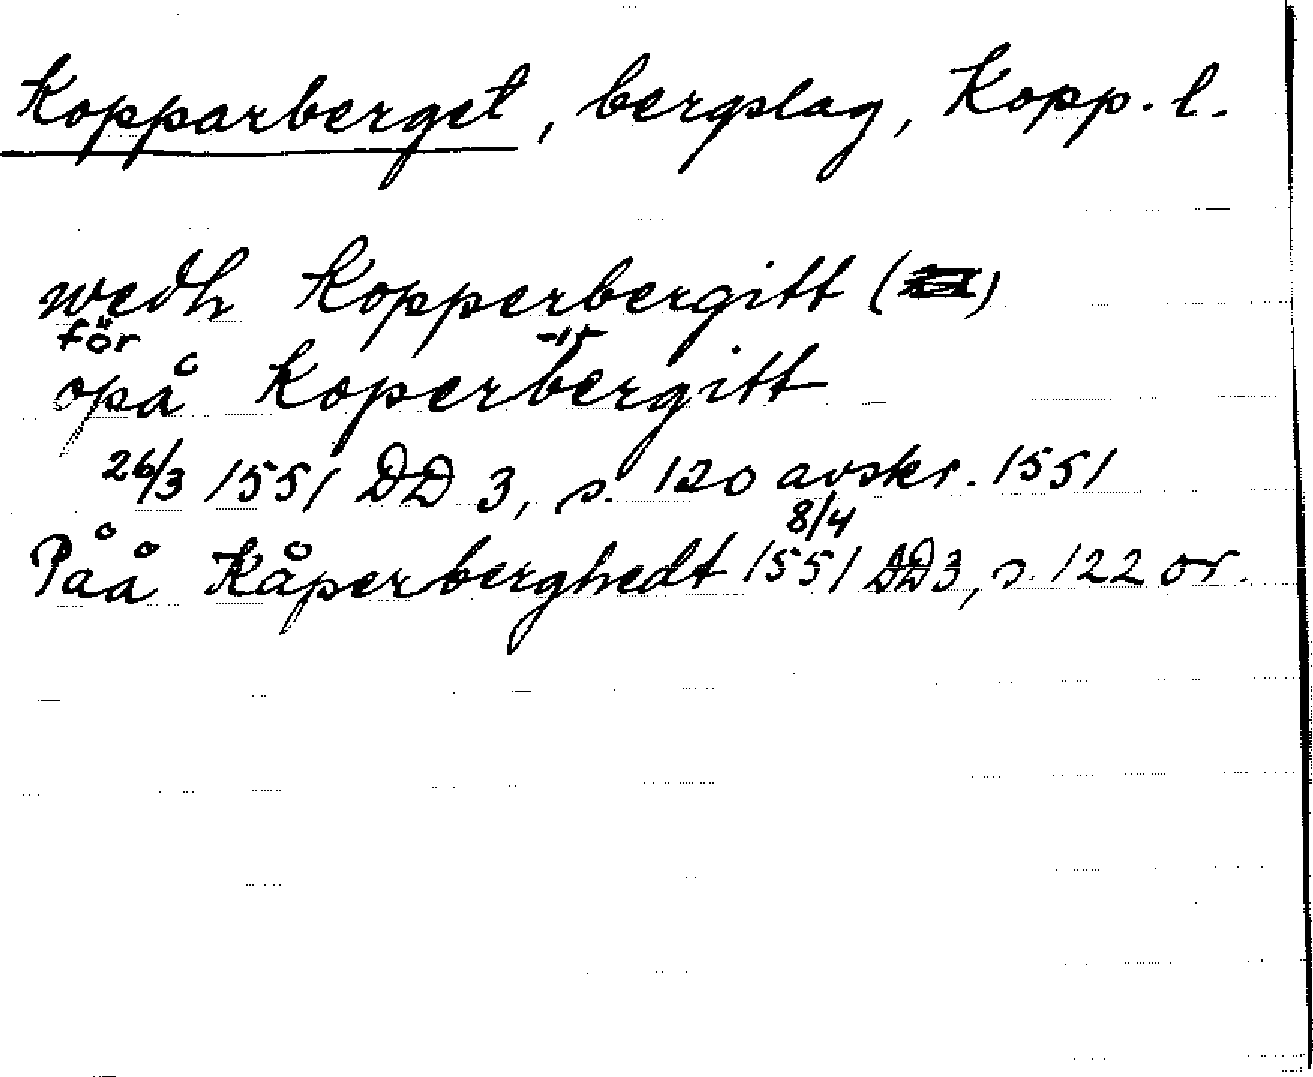 Kopparberget, bergslag, Kopp. l.
wedh Kopperbergitt ()
för -"-
opå Koperbergitt
26/3 1551 DD 3, s. 120 avskr. 1551
8/4
Påå Kåperberghedt 1551 DD3, s. 122 or.